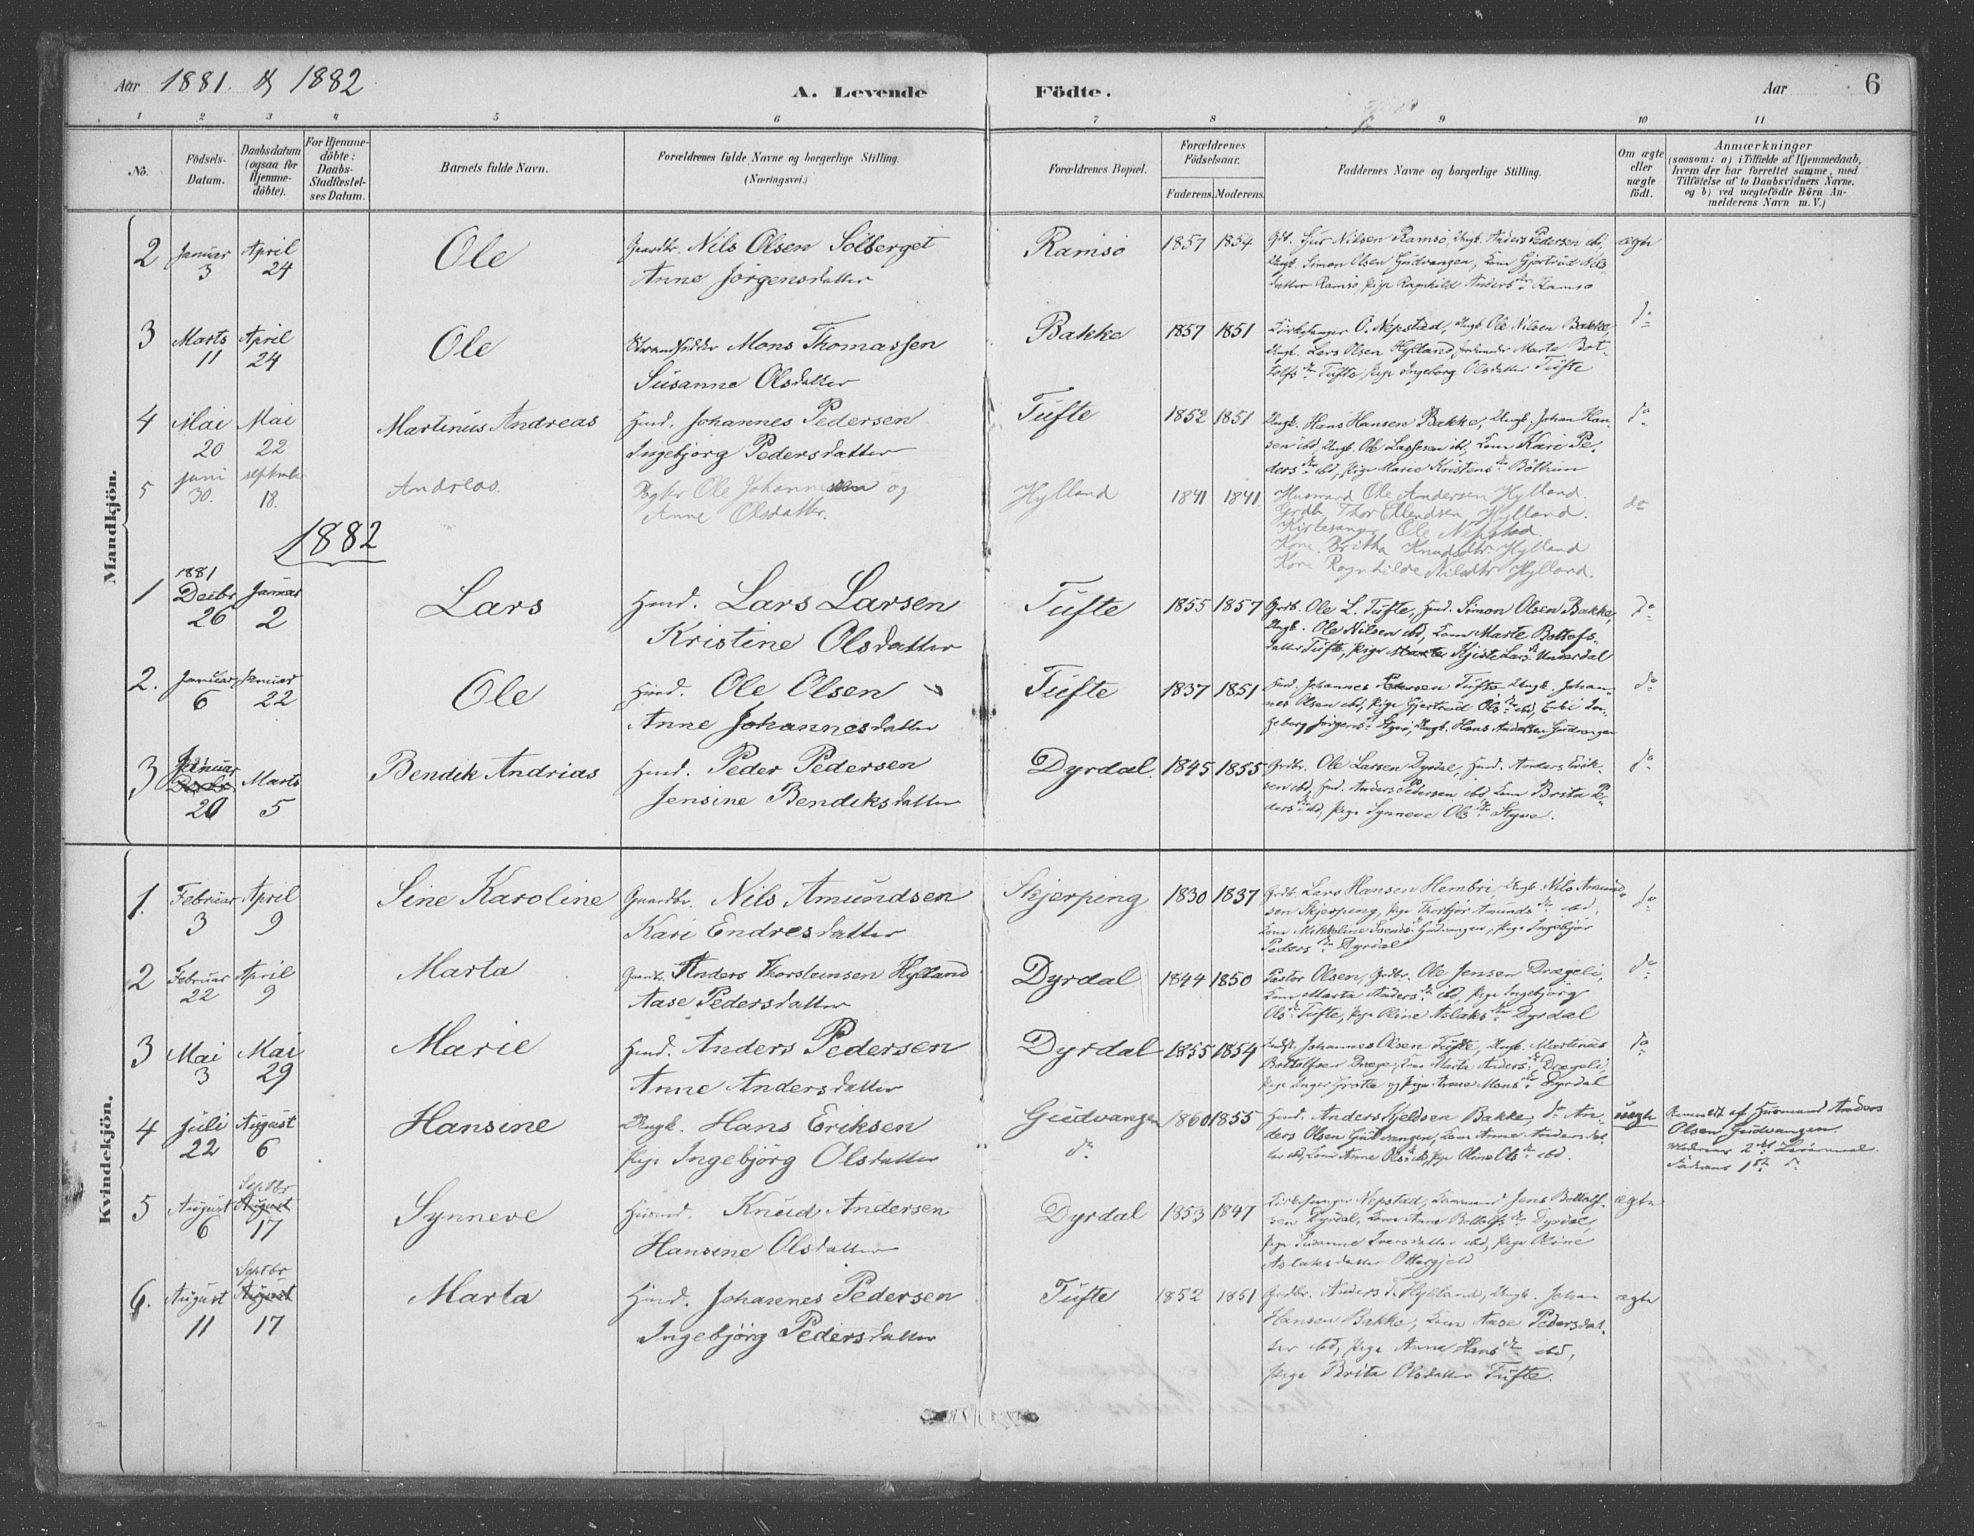 Aar 1881 & 1882
A. Levende Födte.
Aar 6
1 2 3 4 5 6 7 8 9 10 11
No.
Födsels-Datum.
Daabsdatum (ogsaa for Hjemme-döbte).
For Hjemme-döbte: Daabs-Stadfæstel-ses Datum.
Barnets fulde Navn.
Forældrenes fulde Navne og borgerlige Stilling. (Næringsvei.)
Forældrenes Bopæl.
Forældrenes Födselsaar.
Faderens. Moderens.
Faddernes Navne og borgerlige Stilling.
Om ægte eller uægte födt.
Anmærkninger
(saasom: a) i Tilfælde af Hjemmedaab, hvem der har forrettet samme, med Tilföielse af to Daabsvidners Navne, og b) ved uægtefödte Börn An-melderens Navn m. V.)
Mandkjön.
2 Januar 3 April 24 Ole Gaardbr. Nils Olsen Solberget
Anne Jörgensdatter
Ramsö 1857 1854 Gdb. Sjur Nilsen Ramsö, Ungk. Anders Pedersen ibd,
Ungk. Simon Olsen Gudvangen, Kone Gjertrud Nils-
datter Ramsö, Pige Ragnhild Anders dtr Ramsö
ægte
3 Marts 11 April 24 Ole Strandsidder Mons Thomassen
Susanne Olsdatter
Bakke 1857 1851 Kirkesanger O. Nepstad, Ungk. Ole Nilsen Bakke,
Ungk. Lars Olsen Hylland, Marte Bot-
tolfs dtr Tufte, Pige Ingeborg Olsdatter Tufte
do
4 Mai 20 Mai 22 Martinus Andreas Husd. Johannes Pedersen
Ingebjörg Pedersdatter
Tufte 1852 1851 Ungk. Hans Hansen Bakke, Ungk. Johan Han-
sen ibd, Ungk. Ole Lassesen ibd, Kone Kari Pe-
ders dtr ibd, Pige Marie Kristens dtr Böthun
do
5 Juni 30. septembr 18. Andreas. Ole Johannessen og
Anne Olsdatter.
Hylland 1841 1841 Husmand Ole Andersen Hylland.
Grdb. Thor Ellendsen, Hylland.
Kirkesanger Ole Nepstad.
Kone Britha Knudsdtr Hylland
Kone Ragnhilde Nilsdtr Hylland.
do
1882
1 1881 Decbr 26 Januar 2 Lars Husd. Lars Larsen
Kristine Olsdatter
Tufte 1855 1857 Grdb. Ole L. Tufte, Husd. Simon Olsen Bakke,
Ungk. Ole Nilsen ibd, Kone Marte Bottolfs-
datter Tufte, Pige Kjisti Lars dtr Undredal
do
2. Januar 6 Januar 22 Ole Husd. Ole Olsen
Anne Johannesdatter
Tufte 1837 1851 Husd. Johannes Pedersen Tufte, Ungk. Johan-
nes Olsen ibd, Pige Gjertrud Ols dtr ibd, In-
geborg Jörgens dtr Styve, Ungk. Hans Andersen Gudvangen
do
3 Januar 20 Marts 5 Bendik Andrias Husd. Peder Pedersen
Jensine Bendiksdatter
Dyrdal. 1845 1855 Grdbr. Ole Larsen Dyrdal, Husd. Anders Erik-
sen ibd, Husd. Anders Pedersen ibd, Kone Brita Pe-
ders dtr ibd, Pige Synneve Ols dtr Styve.
do
Kvindekjön.
1. Februar 3 April 9 Sine Karoline Gaardbr. Nils Amundsen
Kari Endresdatter
Skjerping 1830 1837 Grdb. Lars Hansen Hembri, Ungk. Nils Amund-
sen Skjerping, Pige Thorbjör Amunds dtr ibd,
Kone Mikkeline Gudvangen, Pige Ingebjör
Peders dtr Dyrdal
do
2 Februar 22 April 9 Marta Gaardbr. Anders Thorsteinsen Hylland
Aase Pedersdatter
Dyrdal 1844 1850 Pastor Olsen, Grdbr. Ole Jensen Drægeli,
Kone Marta Anders dtr ibd, Pige Ingebjörg
Ols dtr Tufte, Pige Oline Aslaks dtr Dyrdal
do
3 Mai 3 Mai 29 Marie Husd. Anders Pedersen
Anne Andersdatter
Dyrdal 1855 1854 Johannes Olsen Tufte, Ungk. Martinus
Bottolfsen Drege, Kone Marta Anders dtr Drægeli,
Pige Inger og Pige Anne Mons dtr Dyrdal
do
4 Juli 22 August 6 Hansine Ungk. Hans Eriksen
Pige Ingebjörg Olsdatter
Gudvangen do 1860 1855 Husd. Anders Kjeldsen Bakke, do An-
ders Olsen Gudvangen, Kone Anna Andersdat-
ter ibd, Kone Anne Ols dtr ibd, Pige Oline Ols dtr ibd.
uægte
Anmeldt af Husmand Anders
Olsen Gudvangen
Moderens 2det Leiermaal
Faderens 1ste do
5 August 6 Septbr August 17 Synneve Husmd. Knud Andersen
Hansine Olsdatter
Dyrdal 1853 1847 Kirkesanger Nepstad, Jens Bottolf-
sen Dyrdal, Kone Anna Bottolfs dtr Dyrdal,
Pige Susanne Iversdatter ibd, Pige Oline
Aslaksdatter Ottergjeld
ægte
6. August 11 Septbr August 17 Marta Husd. Johannes Pedersen
Ingebjörg Pedersdatter
Tufte 1852 1851 Grdbr. Anders T. Hylland, Ungk. Johan
Hansen Bakke, Kone Aase Pedersdat-
ter ibd, Pige Anna Hans dtr ibd,
Pige Brita Olsdatter Tufte.
ægte